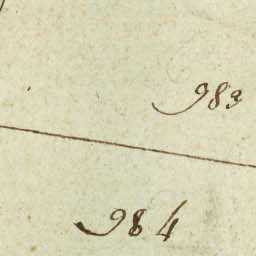 983
984